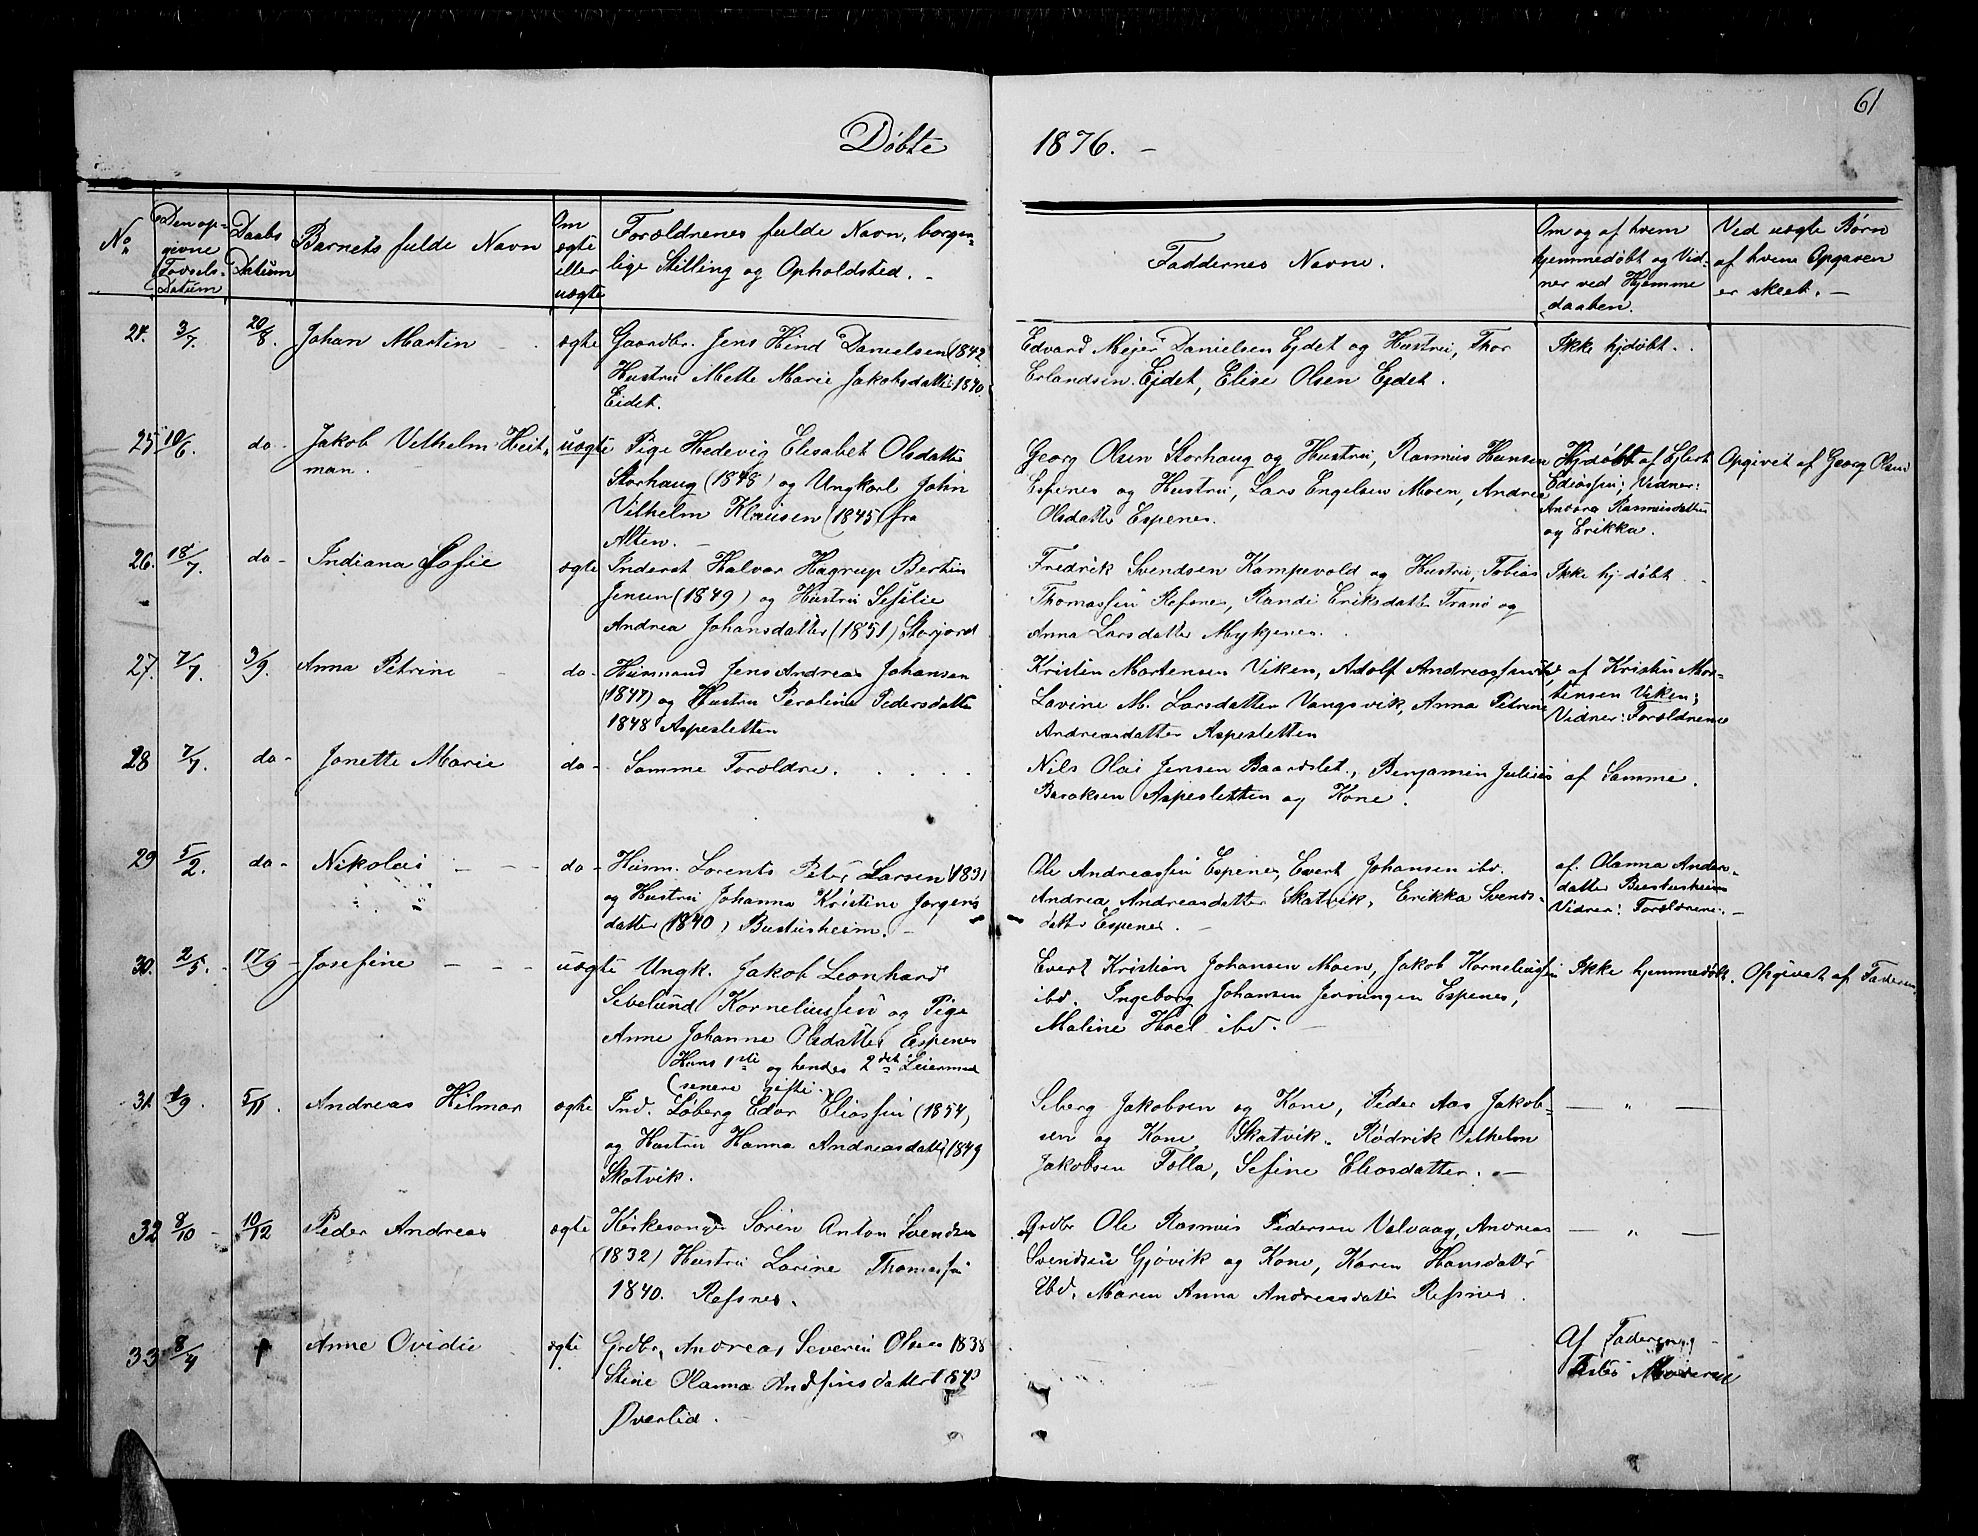 61
Døbte 1876. –
No
Den op-
givne
Fødsels-
Datum
Daabs
Datum
Barnets fulde Navn
Om
ægte
eller
uægte
Forældrenes fulde Navn, borger-
lige Stilling og Opholdsted. –
Faddernes Navne.
Om og af hvem
hjemmedøbt og Vid-
ner ved Hjemme
daaben.
Ved uægte Børn
af hvem Opgaven
er skeet. –
24. 3/7. 20/8. Johan Martin ægte Gaardbr. Jens Hind Danielsen (1842
Hustru Mette Marie Jakobsdatter 1840
Eidet.
Edvard Mejer Danielsen Ejdet og Hustru, Thor
Erlandsen Ejdet, Elise Olsen Ejdet.
Ikke hjdøbt.
25 10/6. do- Jakob Vilhelm Heit-
man.
uægte Pige Hedevig Elisabet Olsdatter
Storhaug (1848) og Ungkarl John
Vilhelm Klausen (1845) fra
Alten. –
Georg Olsen Storhaug og Hustru, Rasmus Hansen
Espenes og Hustru, Lars Engelsen Moen, Andrea
Olsdatter Espenes.
Hjdøbt af Ejlert
Vidner:
Rasmusdatter
og Erikka.
Opgivet af Georg Olsen
26. 18/7. do- Indiana Sofie ægte Inderst Halvor Hagrup Bertin
Jensen (1849) og Hustru Sefilie
Andrea Johansdatter (1851) Storjord
Fredrik Svendsen Kampevold og Hustru, Tobias
Thomassen Refsne, Randi Eriksdatter Tranø og
Anna Larsdatter Mykjenes.
Ikke hj-døbt
27. 7/7. 3/9. Anna Petrine do- Husmand Jens Andreas Johansen
(1847) og Hustru Peroline Pedersdatter
1848 Aspesletten
Kristen Mortensen Viken, Adolf Andreassen
Lavine M. Larsdatter Vangsvik, Anna Petrine
Andreasdatter Aspesletten
af Kristen Mor-
tensen Viken;
Vidner: Forældrene
28 7/7. do- Janette Marie do- Samme Forældre.
Nils Olai Jensen Baardslet., Benjamin Julius
Baroksen Aspesletten og Kone.
af Samme.
29 5/2. do- Nikolai do- Husm. Lorents Peter Larsen 1831
og Hustru Johanna Kristine Jørgens
datter (1840) Bustusheim. –
Ole Andreassen Espenes, Evert Johansen ibd.
Andrea Andreasdatter Skatvik, Erikka Svends-
datter Espenes.
af. Olanna Anders-
datter Bustusheim
Vidner: Forældrene. –
30. 2/5. 17/9 Josefine uægte Ungk. Jakob Leonhard
Sevelund Korneliussen og Pige
Anne Johanne Olsdatter Espenes
Hans 1ste og hendes 2det Leiermaal
(senere gifte.)
Evert Kristian Johansen Moen, Jakob Korneliussen
ibd. Ingeborg Johansen Espenes,
Maline Hoel ibd.
Ikke hjemmedøbt.
Opgivet af Faderen
31. 1/9. 5/11. Andreas Hilmar ægte Ind. Søberg Edor Eliassen (1854)
og Hustru Hanna Andreasdatter 1849
Skatvik.
Seberg Jakobsen og Kone, Peder Aas Jakob-
sen og Kone Skatvik. Rødrik Vilhelm
Jakobsen Folla, Sefine Eliasdatter. –
— „ —
32 8/10 10/12 Peder Andreas ægte Kirkesanger Søren Anton Svendsen
(1832) Hustru Lorine Thomassen
1840. Refsnes.
Grdbr Ole Rasmus Pedersen Valvaag, Andreas
Svendsen Gjøvik og Kone, Karen Hansdatter
Ibd. Maren Anna Andreasdatter Refsnes.
— „ —
33 8/4 Anne Ovidie ægte Grdbr. Andreas Severin Olsen 1838
Stine Olanna Andfinsdatter 1843
Øverlid.
Af Faderen;